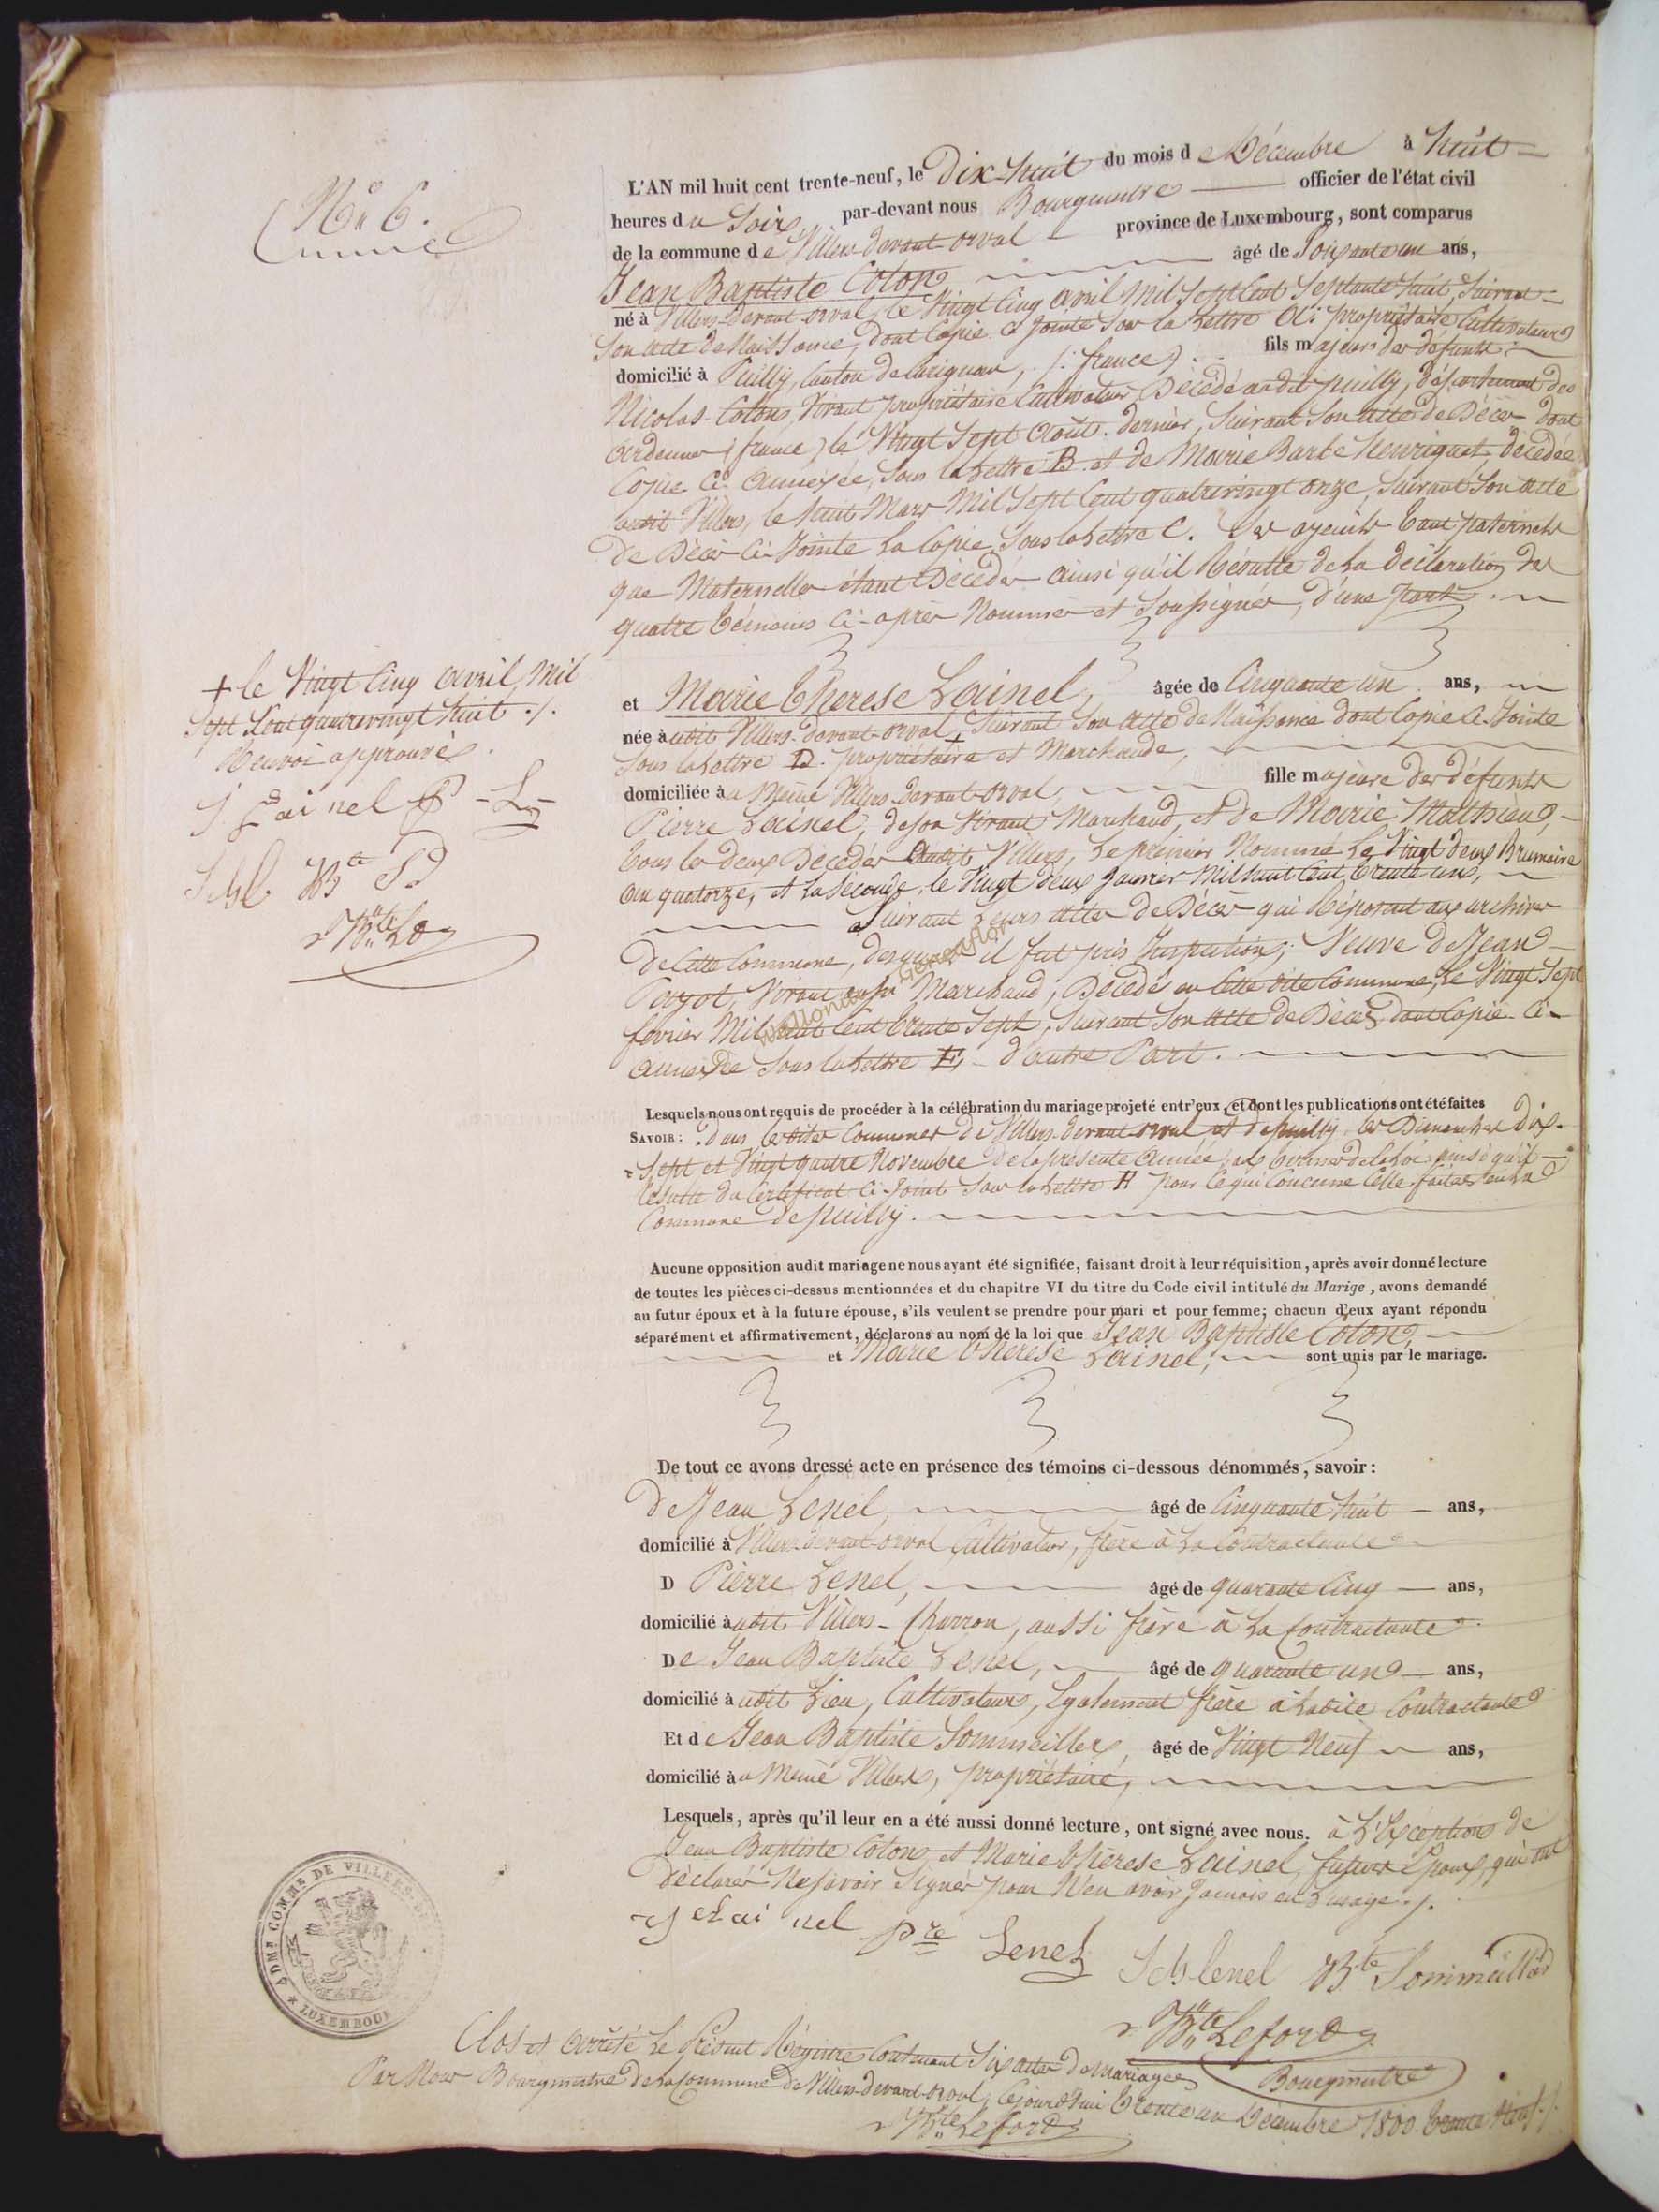 N° 6.
L'AN mil huit cent trente-neuf, le Dix-huit du mois de Décembre à huit
heures du Soir, par-devant nous Bourgmestre officier de l'état civil
de la commune de Villers-devant-orval province de Luxembourg, sont comparus
Jean Baptiste Coton âgé de Soixante un ans,
né à Villers-devant-orval, le Vingt Cinq avril Mil Sept Cent Septante huit, Suivant
Son acte de Naissance, dont Copie Ci Jointe Sous la Lettre A: propriétaire, Cultivateur
domicilié à Puilly, Canton de Carignan, (: france) fils majeur des défunts
Nicolas Coton, Vivant propriétaire Cultivateur, Décédé audit puilly, département des
Ardennes (france) le Vingt Sept Août dernier, Suivant Son acte de Décès dont
Copie Ci Annexée, Sous la Lettre B. et de Marie Barbe Henriquet décédée
audit Villers, le huit Mars Mil Sept Cent quatrevingt onze, Suivant Son acte
de Décès Ci-Jointe la Copie Sous la Lettre C. Les ayeuls tant paternels
que Maternelles étant Décédés ainsi qu'il Résulte de la déclaration des
quatre témoins Ci-après Nommés et Soussignés, d'une part.
et Marie Therese Lainel, âgée de Cinquante un ans,
née audit Villers-devant-orval, + Suivant Son Acte de Naissance dont Copie Ci-Jointe
Sous la Lettre D. propriétaire et Marchande,
domiciliée au Même Villers-devant-orval, fille majeure des défunts
Pierre Lainel, de son Vivant Marchand, et de Marie Mathieu,
tous les deux Décédés Audit Villers, Le premier Nommé Le Vingt deux Brumaire
an quatorze, et la Seconde, le Vingt deux Janvier Mil huit Cent trente un,
Suivant Leurs actes de Décès qui Réposent aux archives
de Cette Commune, desquels il fut pris Inspection; Veuve de Jean
Payot, Vivant aussi Marchand, Décédé en Cette dite Commune, Le Vingt Sept
février Mil huit Cent trente Sept, Suivant Son Acte de Décès dont Copie Ci-
Annexée Sous la Lettre E, d'autre Part.
+ le Vingt Cinq avril Mil
Sept Cent quatrevingt huit ./.
Renvoi approuvé.
J Lainel P - L
J Bl Bte Sd
J Bte Ld
Lesquels nous ont requis de procéder à la célébration du mariage projeté entr'eux, et dont les publications ont été faites
SAVOIR: dans lesdites Communes de Villers-devant-orval et de puilly les Dimanches Dix-
Sept et Vingt quatre Novembre de la présente Année, aux termes de la Loi, ainsi qu'il
résulte du Certificat Ci-Joint Sous la Lettre F pour Ce qui Concerne Celle faites en la
Commune de puilly.
Aucune opposition audit mariage ne nous ayant été signifiée, faisant droit à leur réquisition, après avoir donné lecture
de toutes les pièces ci-dessus mentionnées et du chapitre VI du titre du Code civil intitulé du Marige, avons demandé
au futur époux et à la future épouse, s'ils veulent se prendre pour mari et pour femme; chacun d'eux ayant répondu
séparément et affirmativement, déclarons au nom de la loi que Jean Baptiste Coton,
et Marie Therese Lainel, sont unis par le mariage.
De tout ce avons dressé acte en présence des témoins ci-dessous dénommés, savoir:
De Jean Lenel, âgé de Cinquante huit ans,
domicilié à Villers-devant-orval Cultivateur, frère à La Contractante
D Pierre Lenel, âgé de quarante Cinq ans,
domicilié audit Villers - Charron, aussi frère à La Contractante
De Jean Baptiste Lenel, âgé de quarante un ans,
domicilié audit Lieu, Cultivateur, Egalement frère à Ladite Contractante
Et de Jean Baptiste Sommeiller, âgé de Vingt Neuf ans,
domicilié au Même Villers, propriétaire,
Lesquels, après qu'il leur en a été aussi donné lecture, ont signé avec nous. à L'Exception de
Jean Baptiste Coton et Marie Therese Lainel, futurs Epoux, qui ont
déclarés Ne savoir Signer pour N'en avoir Jamais eu L'usage ./.
J Lainel pre Lenel J Bl lenel Bte Sommeiller
J Bte Leford
Bourgmestre
Clos et Arrêté Le Présent Régistre Contenant Six actes de mariages
Par Nous Bourgmestre de la Commune de Villers-devant-orval, Cejourd'hui Trente un Décembre 1800 trente Neuf ./.
J Bte Leford
ADM. COMM. DE VILLERS-DE
LUXEMBOUR